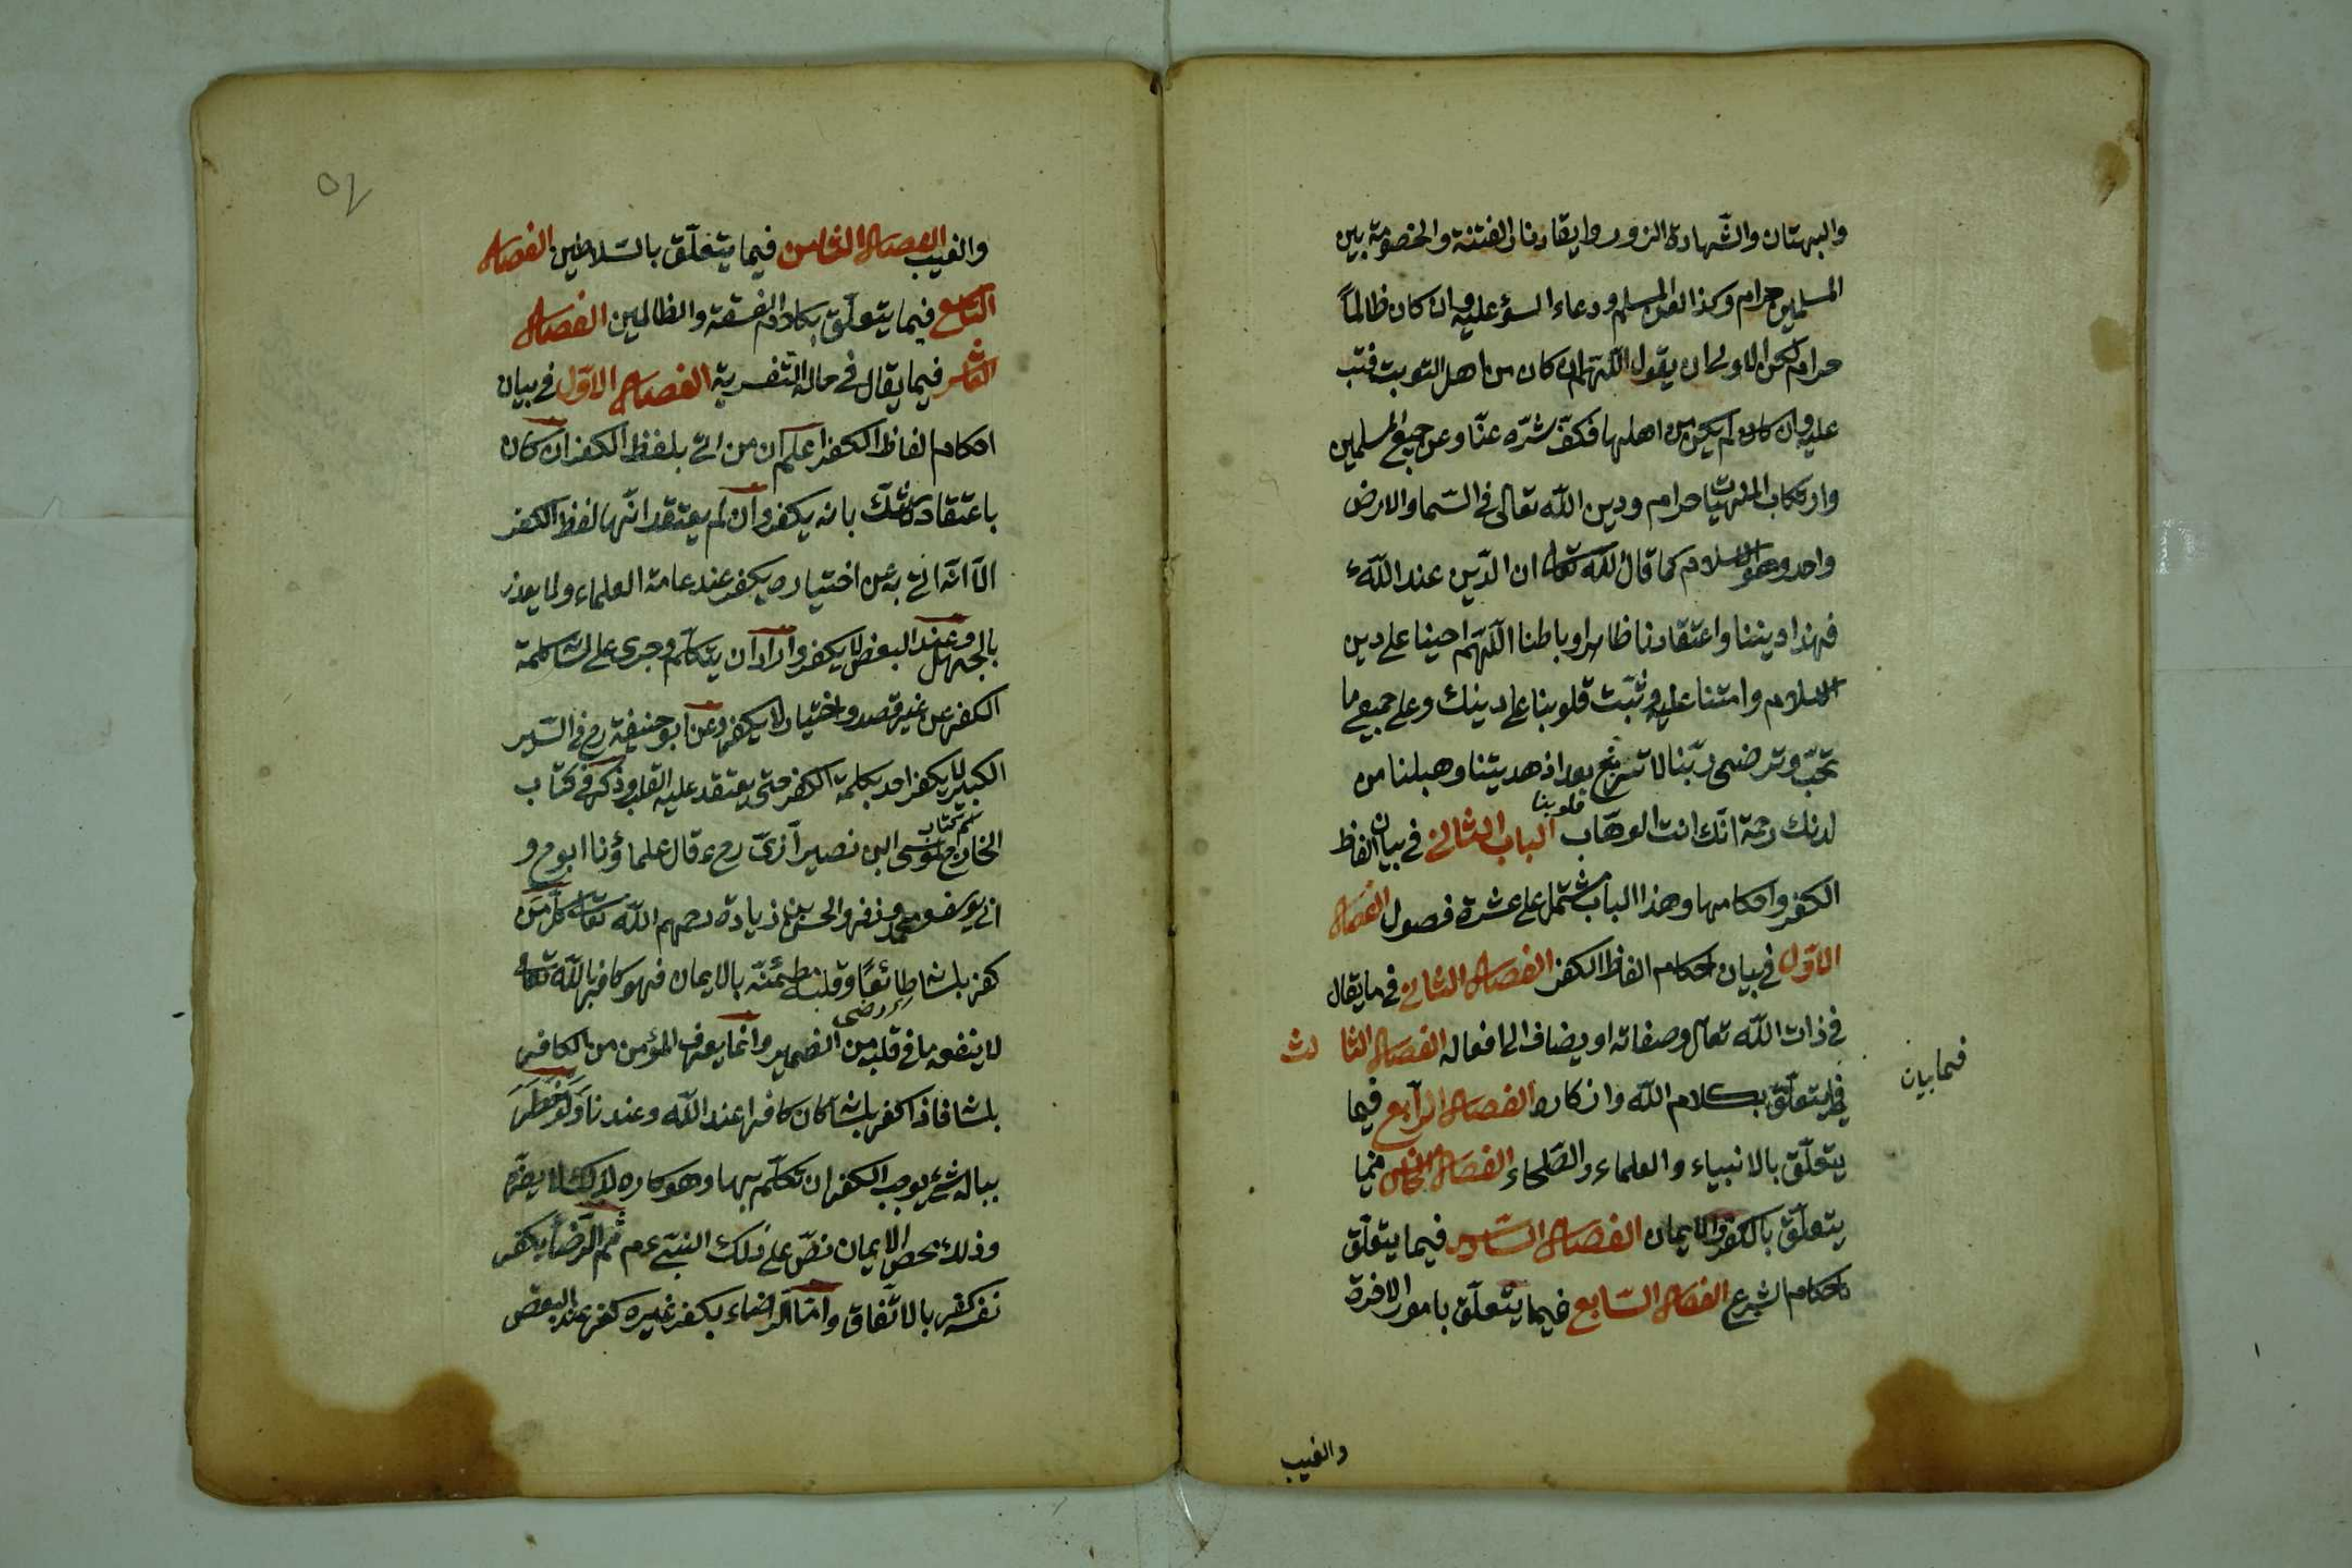 والبهتان والشهادة الزور وايقاد نار الفتنة والخصومة بين
المسلمين حرام وكذا لعن المسلم ودعاء السؤ عليه وان كان ظالماً
حرام لكن الاولى ان يقول اللّهم ان كان من اهل التوبت فتب
عليه وان كان لم يكن من اهلها فكفّ شرّه عنّا وعن جميع المسلمين
وارتكاب المنهيّات حرام ودين اللّه تعالى في السّما والارض
واحد وهو الاسلام كما قال اللّه تعالى ان الدّين عند اللّه
فهذا ديننا واعتقادنا ظاهرا وباطنا اللّهمّ احينا على دين
الاسلام وامتنا عليه وثبّت قلوبنا على دينك وعلى جميع ما
تحبّ وترضى ربّنا لا تزغ قلوبنا بعد اذ هديتنا وهب لنا من
لدنك رحمة انّك انت الوهّاب الباب الثانى في بيان الفاظ
الكفر واحكامها وهذا الباب مشتمل على عشرة فصول الفصل
الاوّل في بيان احكام الفاظ الكفر الفصل الثانى في ما يقال
في ذات اللّه تعالى وصفاته او يضاف الى افعاله الفصل الثالث
فيما يتعلّق بكلام اللّه واذكاره الفصل الرّابع فيما
فيما بيان
يتعلّق بالانبياء والعلماء والصّلحاء الفصل الخامس فيما
يتعلّق بالكفر والايمان الفصل السّادس فيما يتعلّق
باحكام الشرع الفصل السّابع فيما يتعلّق بامور الاخرة
والغيب
والغيب الفصل الثامن فيما يتعلّق بالسّلاطين الفصل
التاسع فيما يتعلّق بكلام الفسقة والظالمين الفصل
العاشر فيما يقال في حالة التعزية الفصل الاوّل في بيان
احكام الفاظ الكفر اعلم ان من اتى بلفظ الكفر ان كان
باعتقاده لاشكّ بانه يكفر وان لم يعتقد انّها لفظ الكفر
الّا انّه اتى به عن اختياره يكفر عند عامة العلماء ولا يعذر
بالجهل وعند البعض لا يكفر واراد ان يتكلّم وجرى على لسانه كلمة
الكفر من غير قصد واختيار لا يكفر وعن ابو حنيفة رح في السّير
الكبير لا يكفر احد بكلمة الكفر حتى يعتقد عليه القلب وذكر في كتاب
ابن نصير رازىّ رح وقال علماؤنا ابو ح و
ابى يوسف ومحمد وزفر والحسن بن زيادة رحمهم اللّه تعالى كلّ من
كفر بلسانه طائعًا وقلبه مطمئنّة بالايمان فهو كافر باللّه تعالى
لا ينفعه ما في قلبه من الضمير وانّما يعرف المؤمن من الكافر
بلسانه فاذا كفر بلسانه كان كافرا عند اللّه وعندنا ولو خطر
بباله شئ يوجب الكفر ان تكلّم بها وهو كاره لذلك لا يضرّه
وذلك محض الايمان نصّ على ذلك النبىّ عم ثم الرّضا بكفر
نفسه كفر بالاتّفاق وامّا الرّضاء بكفر غيره كفر عند البعض